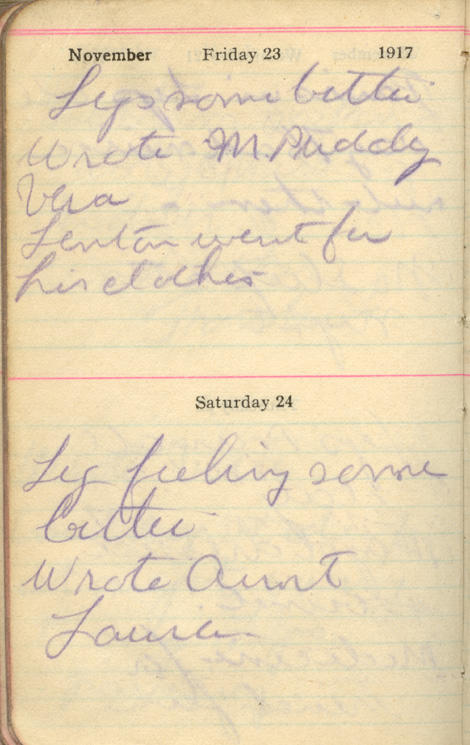 November Friday 23 1917
Legs some better
Wrote M. Puddy
Vera
Lenton went for
his clothes
Saturday 24
Leg feeling some
better
Wrote Aunt
Laura